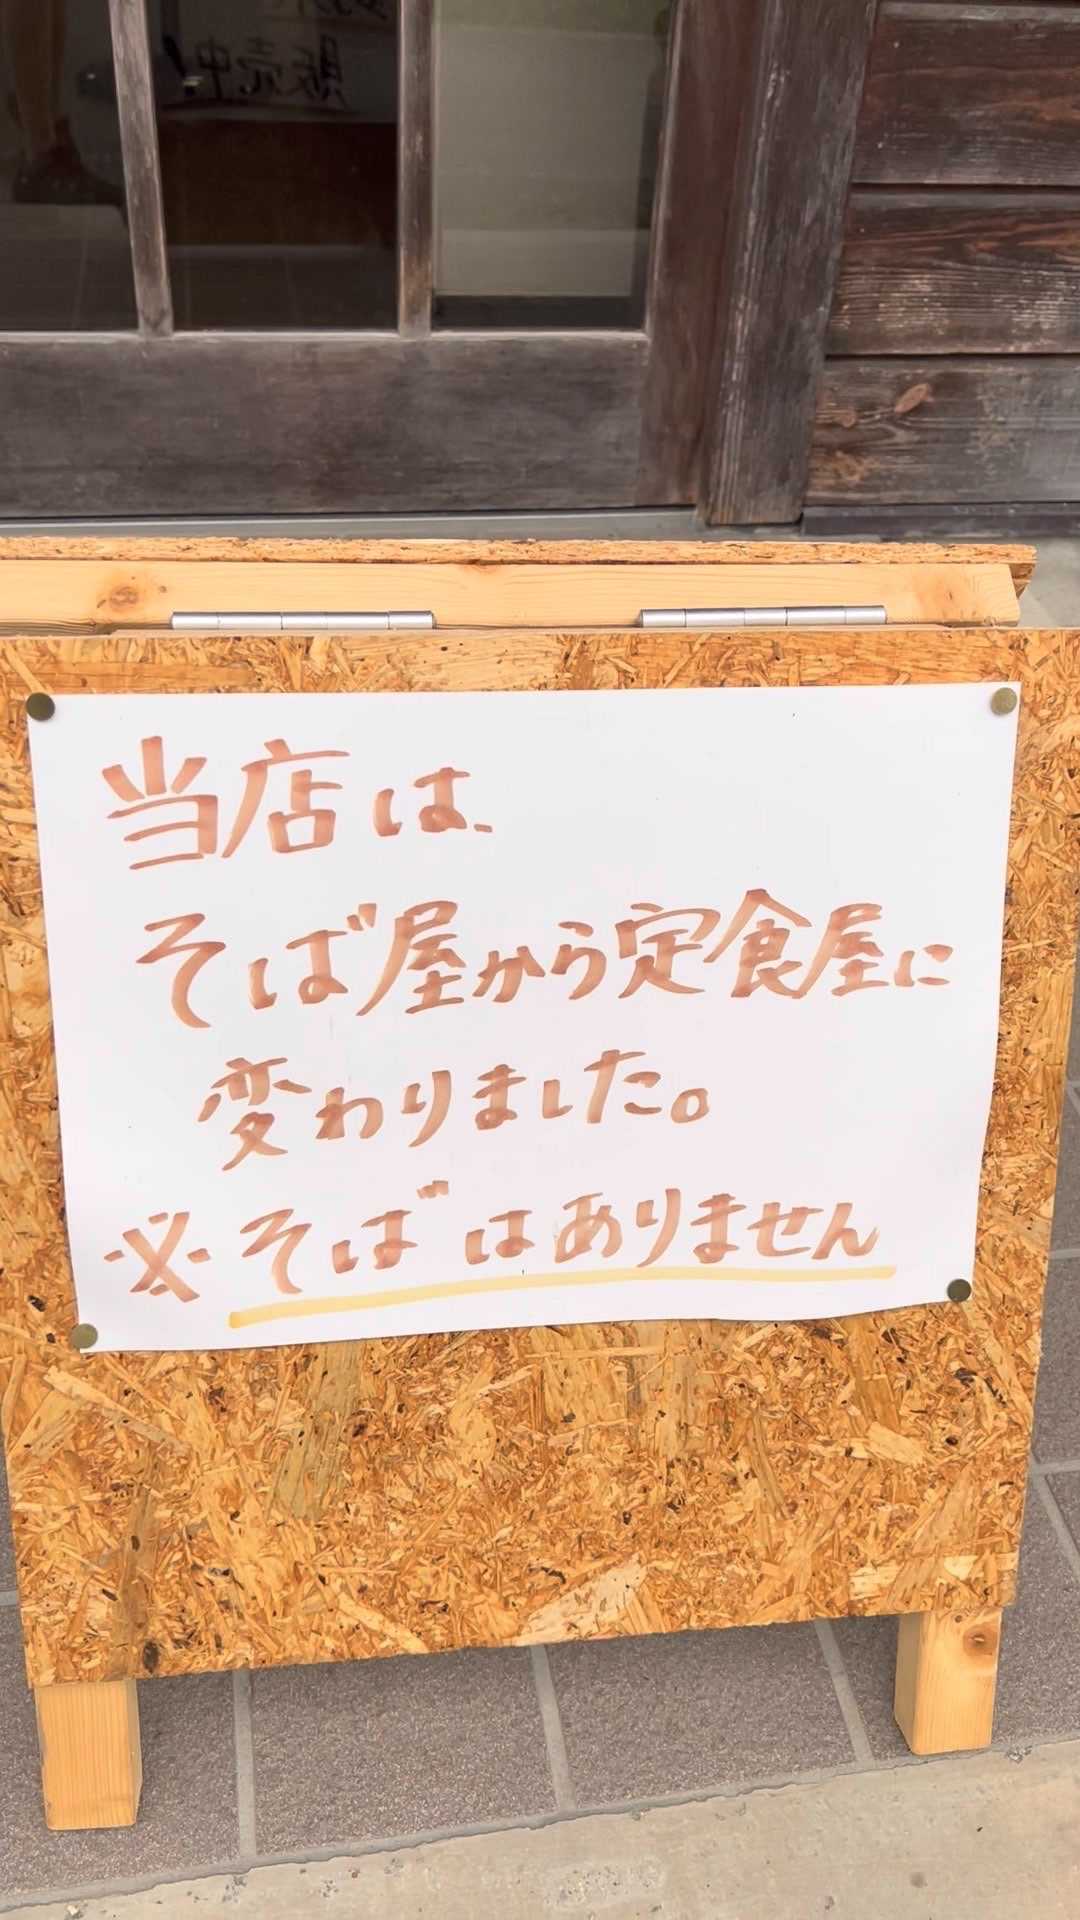 販売中
当店は、
そば屋から定食屋に
変わりました。
※そばはありません